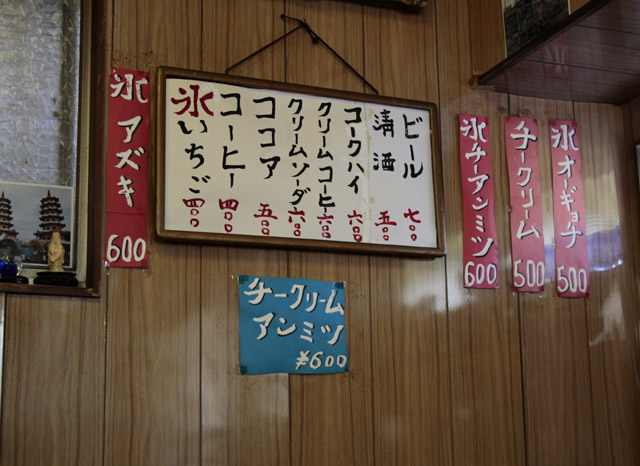 氷オーギョチ 500
チークリーム 500
氷チーアンミツ 600
ビール 七〇〇
清酒 五〇〇
コークハイ 六〇〇
クリームコーヒー 六〇〇
クリームソーダ 六〇〇
ココア 五〇〇
コーヒー 四〇〇
氷いちご 四〇〇
氷アズキ 600
チークリーム
アンミツ
¥600